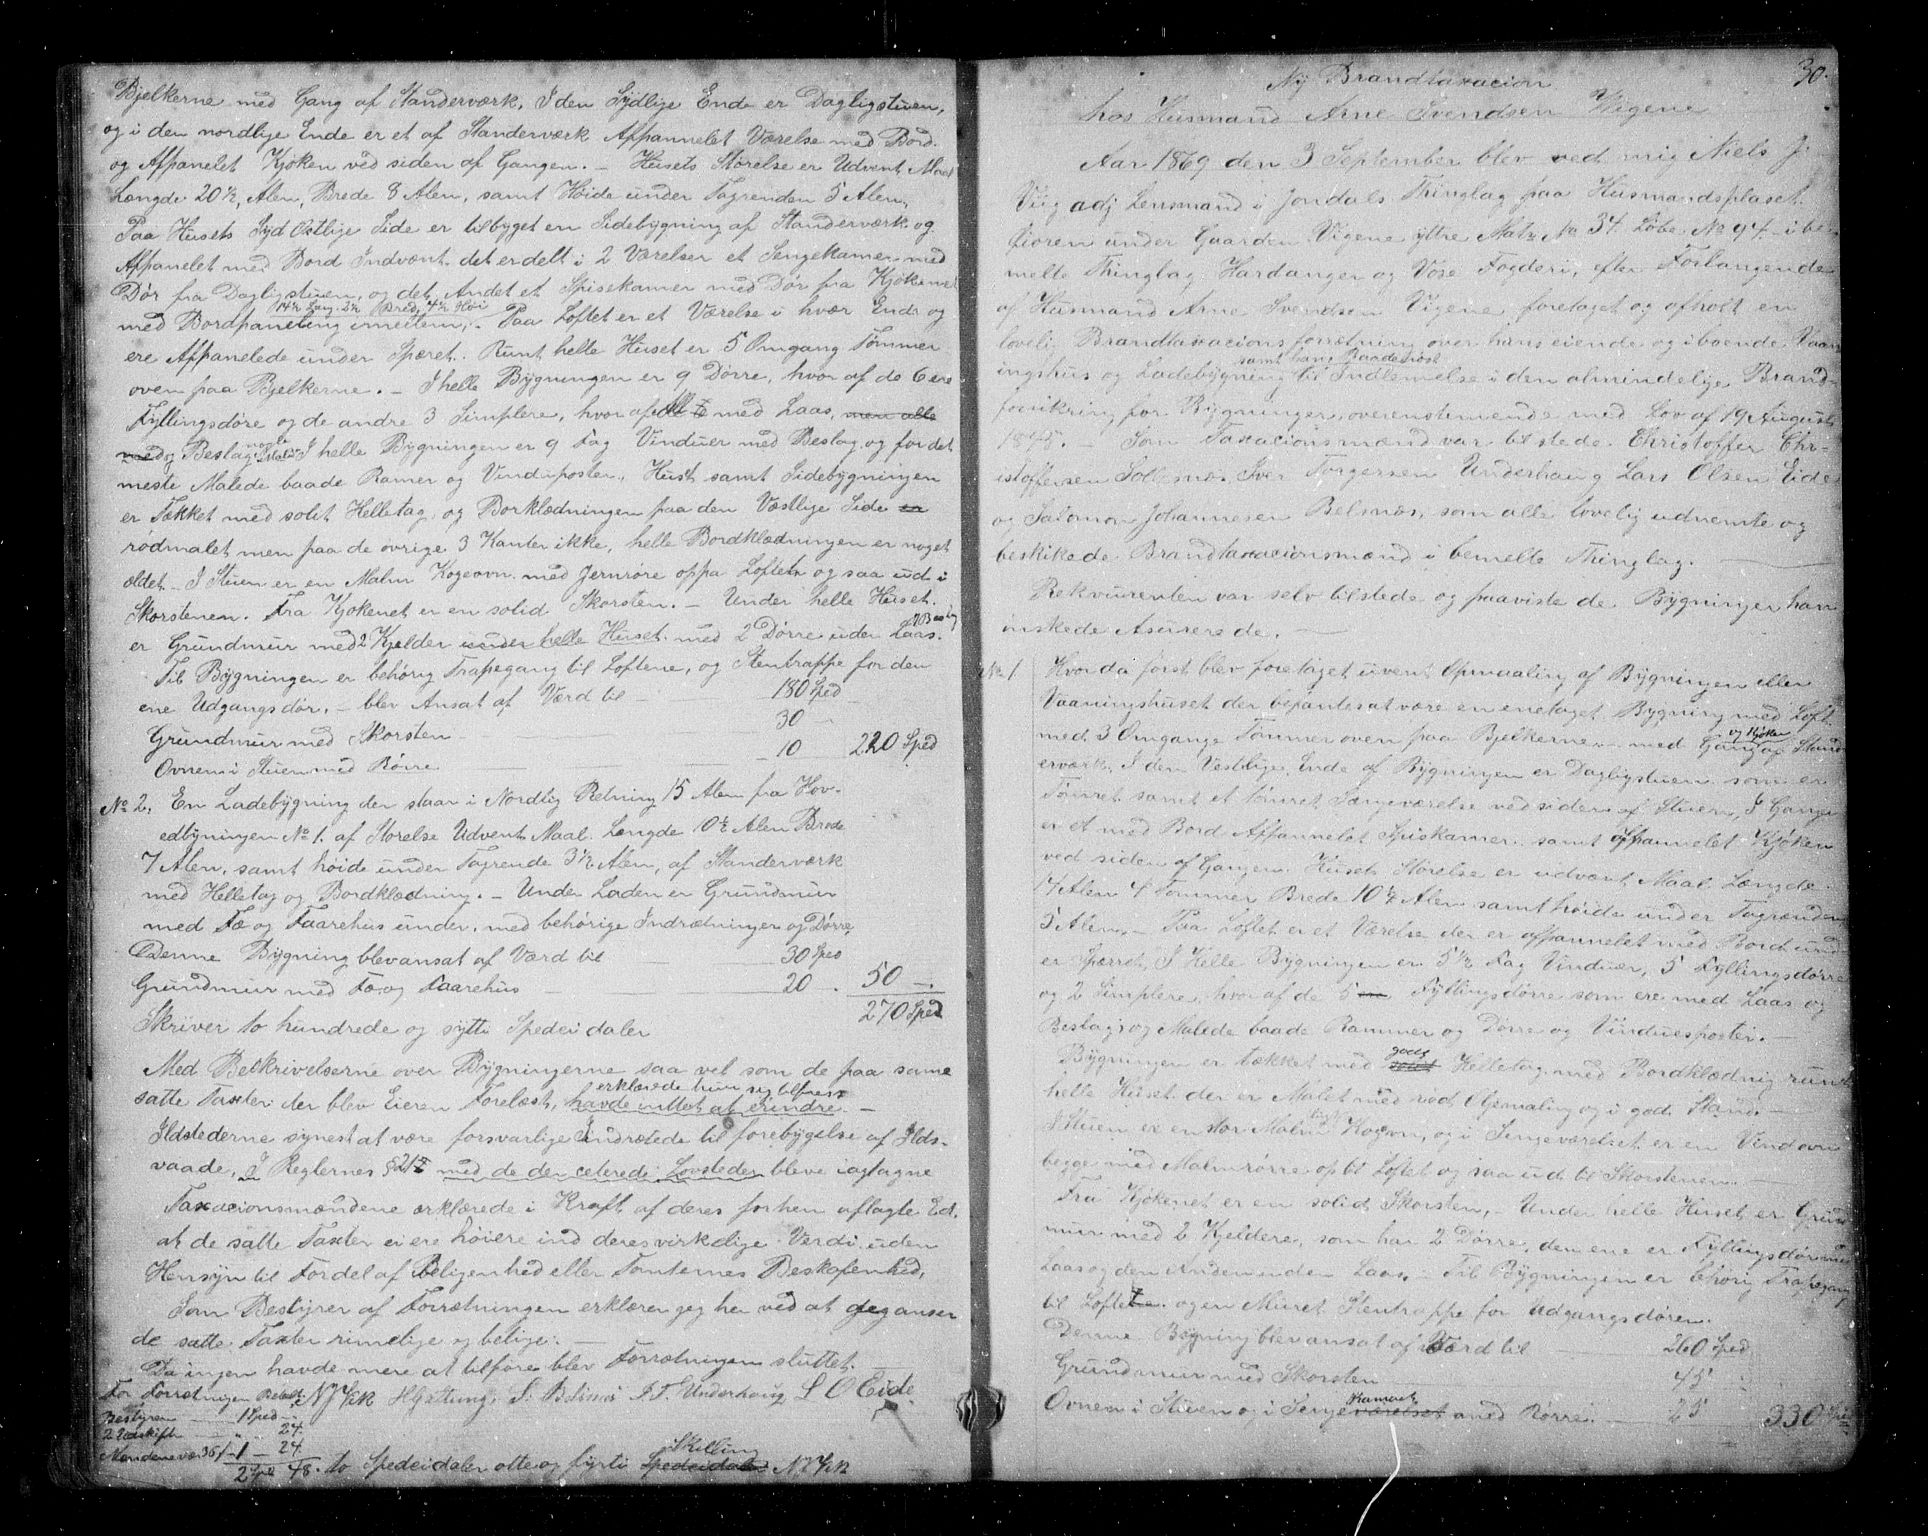 Bjelkerne med Gang af Standerværk, I den Sydlige Ende er Dagligstuen,
og i den nordlige Ende er et af Standerværk Affpannelet Værelse med Bord.
og Affpanelet Kjøken ved siden af Gangen. – Husets Størelse er Udvent. Maal
Længde 20½, Alen, Brede 8 Alen, samt Høide under Tagrenden 5 Alen,
Paa Husets Syd Ostlige Side er tilbyget en Sidebygning af Standerværk og
Affpanelet med Bord Indvænt. det er delt i 2 Værelser et Sengekamer med
Dør fra Dagligstuen, og det Andet et Spisekamer med Dør fra Kjøkenet
14½ Lang. 2½ Bred, 4½ Høi
med Bordpaneling imellem,. Paa Loftet er et Værelse i hvær Ende og
ere Affpanelede under Spæret. Runt helle Huset er 5 Omgang Tømmer
oven paa Bjelkerne. – I helle Bygningen er 9 Dørre, hvor af de 6 ere
Fyllingsdøre og de andre 3 Simplere, hvor af alle med Laas, men alle
med Beslag nogle Malet I helle Bygningen er 9 Fag Vinduer med Beslag og for det
meste Malede baade Ramer og Vinduposten, Huset samt Sidebygningen
er Tækket med solit Helletag, og Borklædningen paa den Væstlige Side er
rødmalet men paa de øvrige 3 Kanter ikke, helle Bordklædningen er noget
ældet. I Stuen er en Malm Kogeovn. med Jernrøre oppa Loftet og saa ud i
Skorstenen. Fra Kjøkenet er en solid Skorsten. – Under helle Huset
er Grundmur med 2 Kjelder under helle Huset. med 2 Dørre uden Laas.
Til Bygningen er behørig Trapegang til Loftene, og Stentrappe for den
ene Udgangsdør. – blev Ansat af Værd til – 180 Spd
Grundmur med Skorsten – 30 –
Ovnen i Stuen med Rørre – 10 220 Spd
No 2. En Ladebygning der staar i Nordlig Retning 15 Alen fra Hov-
edbyningen No 1. af Storelse Udvent Maal. Længde 10½ Alen Brede
7 Alen, samt høide under Tagrende 3½ Alen, af Standerværk
med Helletag og Bordklædning. – Under Laden er Grundmur
med Fæ og Faarehus under, med behørige Indrætninger og Dørre,
Denne Bygning blev ansat af Værd til – 30 Spd
Grundmur med Fæ og Faarehus – 20. 50 –
270 Spd
Skriver to hundrede og sytti Spedei daler
Med Beskrivelserne over Bygningerne saa vel som de paa same
erklærede hun sig tilfreds
satte Taxter der blev Eieren Forelæst, havde intet at erindre –
Ildstederne synest at være forsvarlige Indrætede til forebygelse af Ilds-
vaade, I Reglernes § 21 med de der citerede Lovsteder bleve iagtagne
Taxacionsmændene ærklærede i Kraft af deres forhen aflagte Ed.
at de satte Taxter ei ere høiere ind deres virkelige Verdi, uden
Hensyn til Fordel af Beligenhed eller Tomternes Beskafenhed,
Som Bestyrer af Forrætningen erklærer jeg her ved at jeg anser
de satte Taxter rimelige og belige. –
Da ingen havde mere at tilføre blev Forrætningen sluttet. –
For Forrætningen Betalt N J Vik S. Belsnes I T. Underhaug L O Eide
Bestyren – 1 Spd –
2 Udskift – „ 24.
Mændene vær 36/ 1 – 24
2 Spd 48. to Spedeidaler otte og fyrti Skilling Spedeidaler N J Vik
30.
Ny Brandtaxacion
hos Husmand Arne Svendsen Vigene
Aar 1869 den 3 September blev ved mig Niels J.
Viig adj Lensmand i Jondals Thinglag paa Husmandsplaset
under Gaarden Vigene yttre Matr No 34. Löbe No 94 – i be-
melte Thinglag Hardanger og Vose Fogderi, efter Forlangende
af Husmand Arne Svendsen Vigene foretaget og afholt en
lovlig Brandtaxacions forrætning over hans eiende og iboende Vaan-
samt hans Baadenøst
ingshus og Ladebygning til Indlemmelse i den almindelige Brand-
forsikring for Bygninger, overenstemende med Lov af 19 August
1845. – Som Taxacionsmænd var tilstede Christoffer Chr-
istoffersen Solesnæs Iver Torgersen Underhaug Lars Olsen Eide
og Salomon Johannesen Belsnæs, som alle lovelig udnemte og
beskikede Brandtaxacionsmænd i bemelte Thinglag.
Rekvirenten var selv tilstede og paaviste de Bygninger han
ønskede Asurerede. –
No 1 Hvor da først blev foretaget uvent Opmaaling af Bygningen eller
Vaaningshuset der befantes at være en enetaget Bygning med Loft
og Kjøken
med 3 Omgange Tømmer oven paa Bjelkerne – med Gang af Stand-
erværk. I den Vestlige Ende af Bygningen er Dagligstuen som er
Tømret samt et tømret Sængeværelse ved siden af Stuen, I Gangen
er et med Bord Affpannelet Spiskamer. samt affpannelet Kjøken
ved siden af Gangen. Husets Størelse er udvent Maal Længde
14 Alen 4 Tommer Brede 10½ Alen samt høide under Tagrenden
5 Alen. – Paa Loftet er et Værelse der er affpannelet med Bord und-
er Spærret, I Helle Bygningen er 5½ Fag Vinduer, 5 Fyllingsdørre
og 2 Simplere, hvor af de 5 Fyllingsdørre som ere med Laas og
Beslag, og Malede baade Rammer og Dørre og Vinduesposter. –
Bygningen er tækket med godt Helletag med Bordklædnig runt
helle Huset der er Malet med rød Oljemaling og i god Stand. –
I Stuen er en stor Malm Kogovn, og i Sengeværelset er en Vindovn
begge med Malmrørre op til Loftet og saa ud til Skorstenen. –
Fra Kjøkenet er en solid Skorsten, – Under helle Huset er Grund-
mur med 2 Kjeldere, som har 2 Dørre, den ene er Fyllingsdør med
Laas og den Anden uden Laas. – Til Bygningen er behörig Trapegang
til Loftet og en Muret Stentrappe for Udgangsdøren.
Denne Bygning blev ansat af Værd til – 260 Spd
Grundmur med Skorsten – 45 –
Kameret
Ovnen i Stuen og i Senge værelset med Rørre. – 25 330 Spd